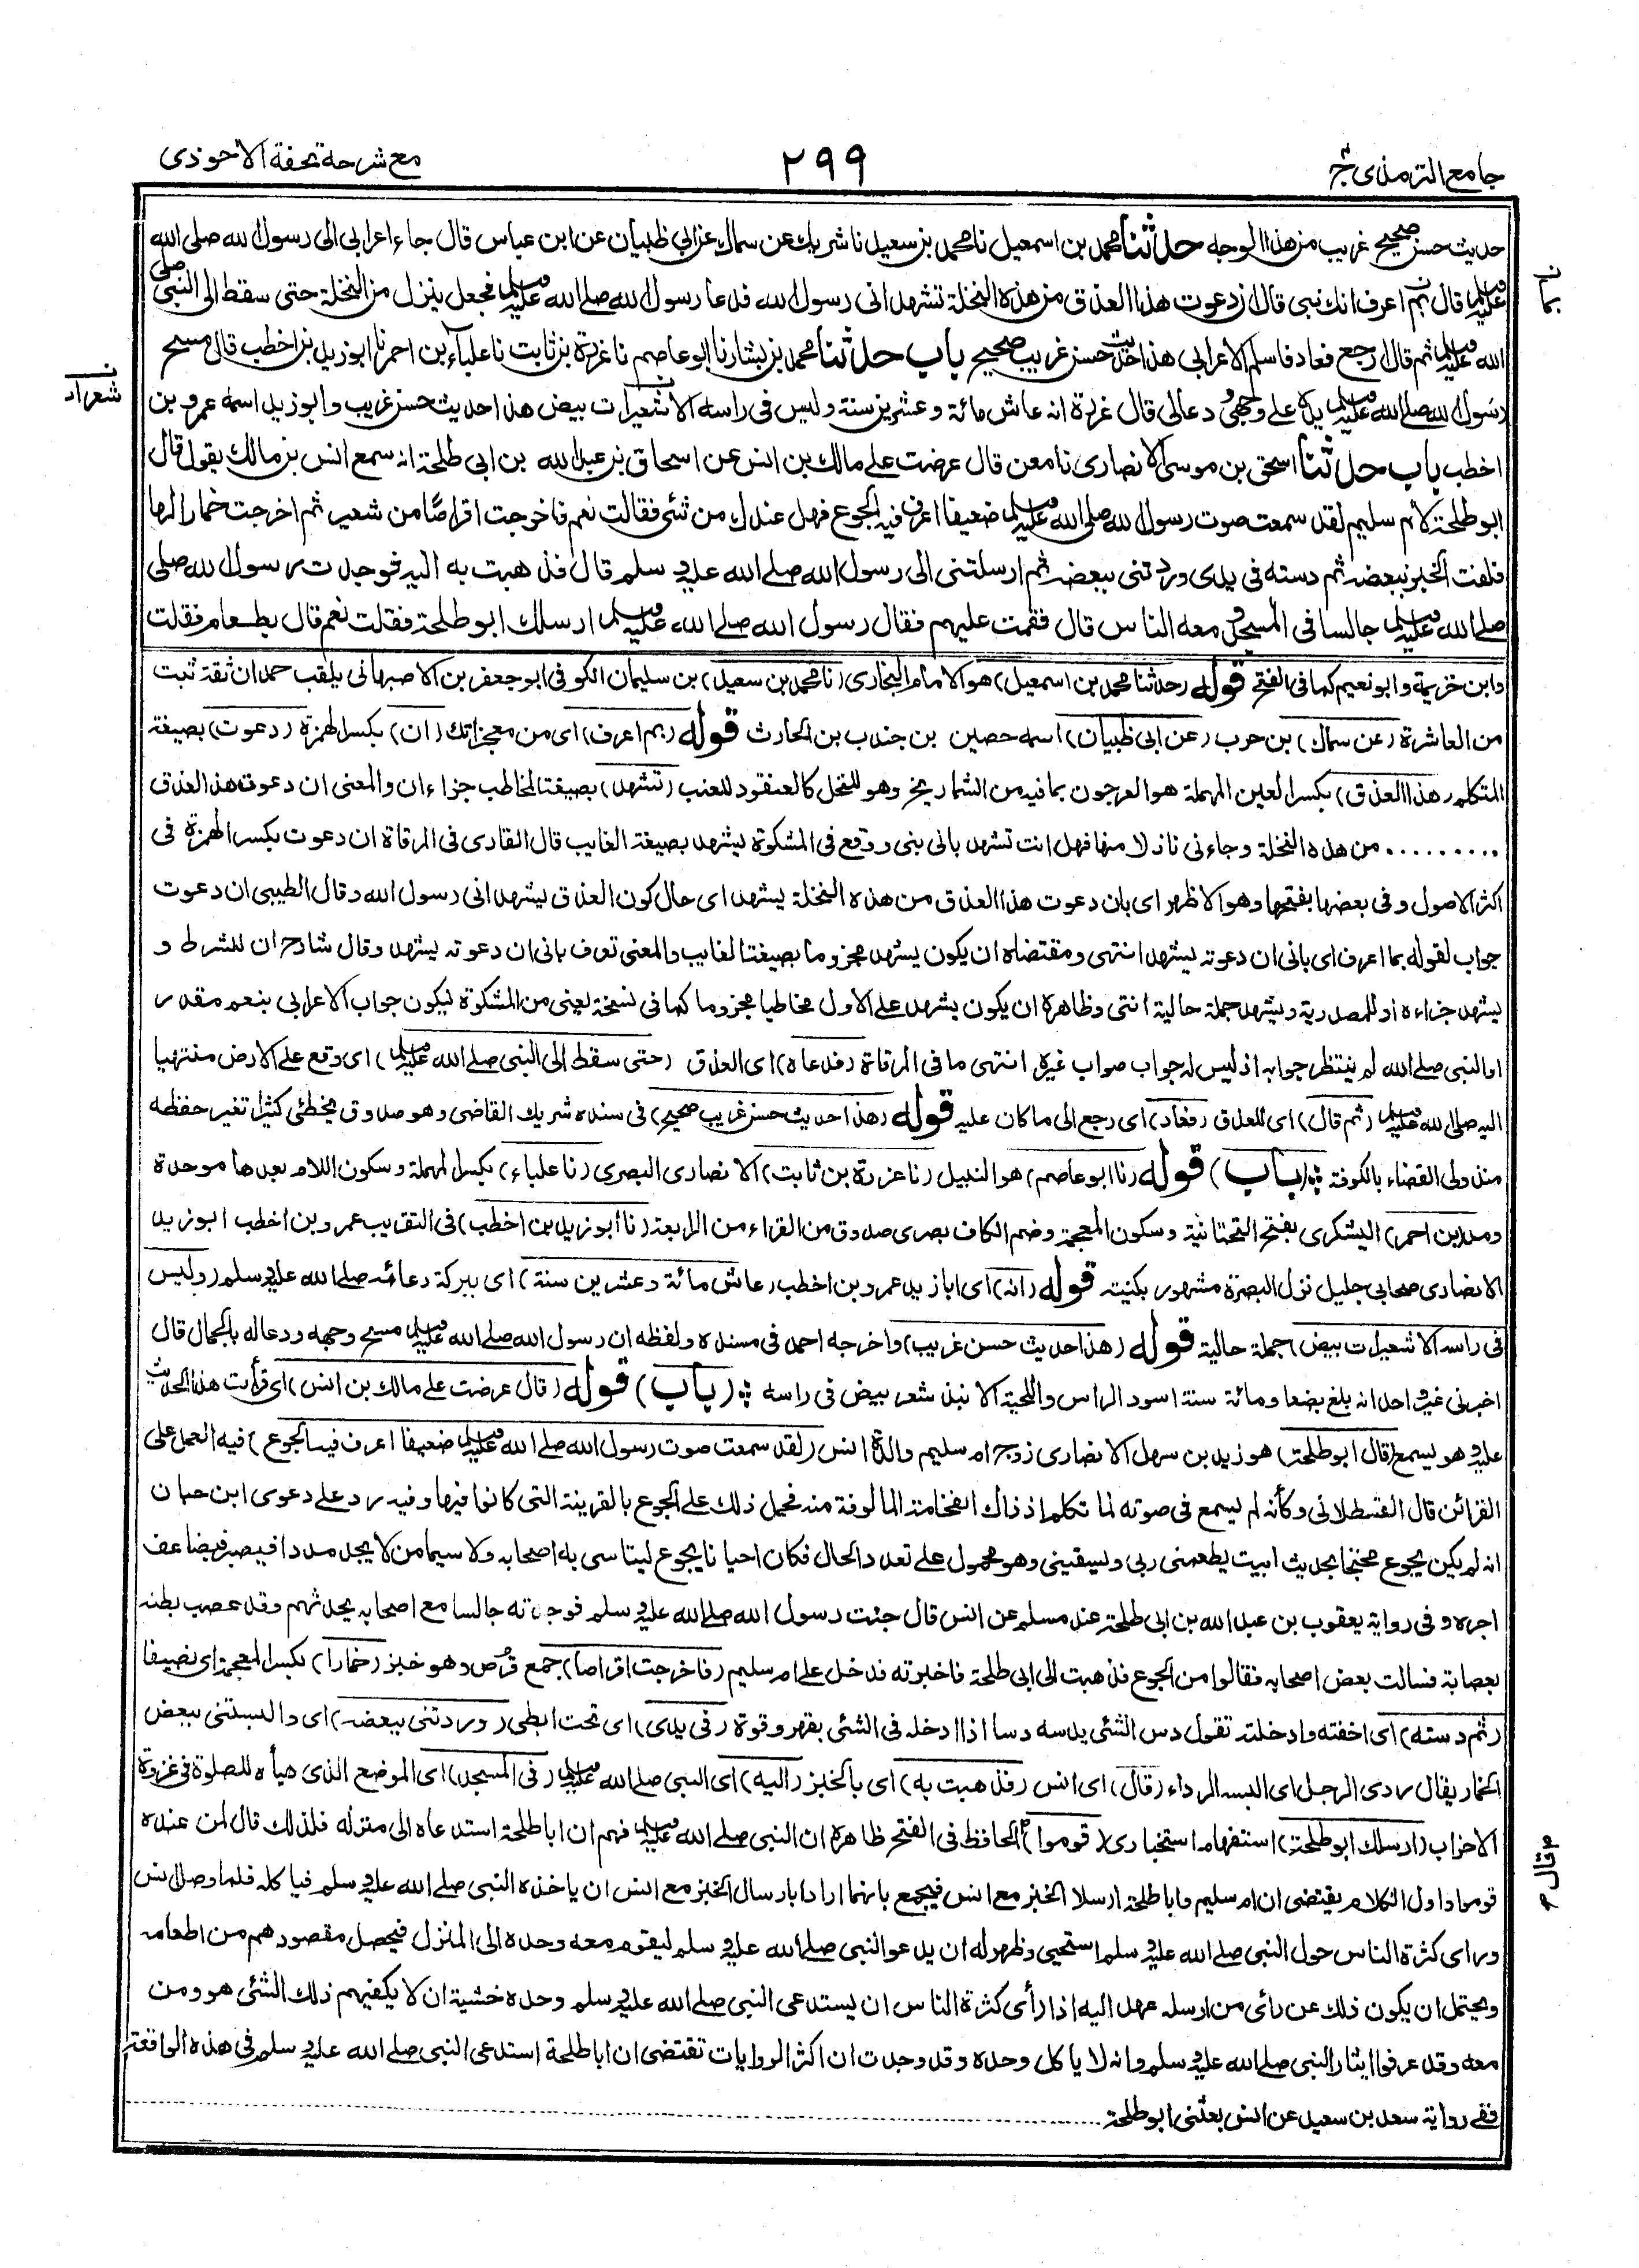 جامع الترمذی ج ۴
۲۹۹
مع شرحه تحفة الاحوذی
حدیث حسن صحیح غریب من هذا الوجه حدثنا محمد بن اسمعیل نا محمد بن سعید نا شریك عن سماك عن ابی ظبیان عن ابن عباس قال جاء اعرابی الی رسول الله صلی الله
علیه وسلم قال بم اعرف انك نبی قال ان دعوت هذا العذق من هذه النخلة تشهد انی رسول الله فدعا رسول الله صلی الله علیه وسلم فجعل ینزل من النخلة حتی سقط الی النبی صلی
الله علیه وسلم ثم قال ارجع فعاد فاسلم الاعرابی هذا حدیث حسن غریب صحیح باب حدثنا محمد بن بشار نا ابو عاصم نا عزرة بن ثابت نا علباء بن احمر نا ابو زید بن اخطب قال مسح
رسول الله صلی الله علیه وسلم یده علی وجهی ودعالی قال عزرة انه عاش مائة وعشرین سنة ولیس فی راسه الا شعیرات بیض هذا حدیث حسن غریب وابو زید اسمه عمرو بن
اخطب باب حدثنا اسحق بن موسی الانصاری نا معن قال عرضت علی مالك بن انس عن اسحاق بن عبد الله بن ابی طلحة انه سمع انس بن مالك یقول قال
ابو طلحة لام سلیم لقد سمعت صوت رسول الله صلی الله علیه وسلم ضعیفا اعرف فیه الجوع فهل عندك من شئی فقالت نعم فاخرجت اقراصًا من شعیر ثم اخرجت خمارا لها
فلفت الخبز ببعضه ثم دسته فی یدی وردتنی ببعضه ثم ارسلتنی الی رسول الله صلی الله علیه وسلم قال فذهبت به الیه فوجدت رسول الله صلی
صلی الله علیه وسلم جالسا فی المسجد ومعه الناس قال فقمت علیهم فقال رسول الله صلی الله علیه وسلم ارسلك ابو طلحة فقلت نعم قال بطعام فقلت
بما ن
ن شعرات
وابن خزیمة وابو نعیم كما فی الفتح قوله (حدثنا محمد بن اسمعیل) هو الامام البخاری (نا محمد بن سعید) بن سلیمان الكوفی ابو جعفر بن الاصبهانی یلقب حمدان ثقة ثبت
من العاشرة (عن سماك) بن حرب (عن ابی ظبیان) اسمه حصین بن جندب بن الحارث قوله (بم اعرف) ای من معجزاتك (ان) بكسر الهمزة (دعوت) بصیغة
المتكلم (هذا العذق) بكسر العین المهملة هو العرجون بما فیه من الشماریخ وهو للنخل كالعنقود للعنب (تشهد) بصیغة المخاطب جزاء ان والمعنی ان دعوت هذا العذق
......... من هذه النخلة وجاءنی نازلا منها فهل انت تشهد بانی نبی ووقع فی المشكوة یشهد بصیغة الغایب قال القاری فی المرقاة ان دعوت بكسر الهمزة فی
اكثر الاصول وفی بعضها بفتحها وهو الاظهر ای بان دعوت هذا العذق من هذه النخلة یشهد ای حال كون العذق یشهد انی رسول الله وقال الطیبی ان دعوت
جواب لقوله بما اعرف ای بانی ان دعوته یشهد انتهی ومقتضاه ان یكون یشهد مجزوما بصیغة الغایب والمعنی تعرف بانی ان دعوته یشهد وقال شارح ان للشرط و
یشهد جزاءه او للمصدریة ویشهد جملة حالیة انتی وظاهره ان یكون یشهد علی الاول مخاطبا مجزوما كما فی نسخة یعنی من المشكوة لیكون جواب الاعرابی بنعم مقدر
او النبی صلی الله لم ینتظر جوابه اذ لیس له جواب صواب غیره انتهی ما فی المرقاة (فدعاه) ای العذق (حتی سقط الی النبی صلی الله علیه وسلم) ای وقع علی الارض منتهیا
الیه صلی الله علیه وسلم (ثم قال) ای للعذق (فعاد) ای رجع الی ما كان علیه قوله (هذا حدیث حسن غریب صحیح) فی سنده شریك القاضی وهو صدوق یخطئی كثیرا تغیر حفظه
منذ ولی القضاء بالكوفة (باب) قوله (نا ابو عاصم) هو النبیل (نا عزرة بن ثابت) الانصاری البصری (نا علباء) بكسر المهملة وسكون اللام بعدها موحدة
ومد (بن احمر) الیشكری بفتح التحتانیة وسكون المعجمة وضم الكاف بصری صدوق من القراء من الرابعة (نا ابو زید بن اخطب) فی التقریب عمرو بن اخطب ابو زید
الانصاری صحابی جلیل نزل البصرة مشهور بكنیته قوله (انه) ای ابا زید عمرو بن اخطب (عاش مائة وعشرین سنة) ای ببركة دعائه صلی الله علیه وسلم (ولیس
فی راسه الا شعیرات بیض) جملة حالیة قوله (هذا حدیث حسن غریب) واخرجه احمد فی مسنده ولفظه ان رسول الله صلی الله علیه وسلم مسح وجهه ودعا له بالجمال قال
اخبرنی غیر احد انه بلغ بضعا ومائة سنة اسود الراس واللحیة الا نبذ شعر بیض فی راسه (باب) قوله (قال عرضت علی مالك بن انس) ای قرأت هذا الحدیث
علیه وهو یسمع (قال ابو طلحة) هو زید بن سهل الانصاری زوج ام سلیم والدة انس (لقد سمعت صوت رسول الله صلی الله علیه وسلم ضعیفا اعرف فیه الجوع) فیه العمل علی
القرائن قال القسطلانی وكأنه لم یسمع فی صوته لما تكلم اذ ذاك الفخامة المالوفة منه فحمل ذلك علی الجوع بالقرینة التی كانوا فیها وفیه رد علی دعوی ابن حبان
انه لم یكن یجوع محتجا بحدیث ابیت یطعمنی ربی ویسقینی وهو محمول علی تعدد الحال فكان احیانا یجوع لیتاسی به اصحابه ولا سیما من لا یجد مددا فیصبر فیضاعف
اجره وفی روایة یعقوب بن عبد الله بن ابی طلحة عند مسلم عن انس قال جئت رسول الله صلی الله علیه وسلم فوجدته جالسا مع اصحابه یحدثهم وقد عصب بطنه
بعصابة فسالت بعض اصحابه فقالوا من الجوع فذهبت الی ابی طلحة فاخبرته فدخل علی ام سلیم (فاخرجت اقراصا) جمع قرص وهو خبز (خمارا) بكسر المعجمة ای نصیفا
(ثم دسته) ای اخفته وادخلته تقول دس الشئی یدسه دسا اذا ادخله فی الشئی بقهر وقوة (فی یدی) ای تحت ابطی (وردتنی ببعضه) ای والبستنی ببعض
الخمار یقال ردی الرجل ای البسه الرداء (قال) ای انس (فذهبت به) ای بالخبز (الیه) ای النبی صلی الله علیه وسلم (فی المسجد) ای الموضع الذی هیأه للصلوة فی غزوة
الاحزاب (ارسلك ابو طلحة) استفهام استخباری (قوموا) الحافظ فی الفتح ظاهره ان النبی صلی الله علیه وسلم فهم ان ابا طلحة استدعاه الی منزله فلذلك قال لمن عنده
قوموا واول الكلام یقتضی ان ام سلیم وابا طلحة ارسلا الخبز مع انس فیجمع بانهما ارادا بارسال الخبز مع انس ان یاخذه النبی صلی الله علیه وسلم فیاكله فلما وصل انس
ورای كثرة الناس حول النبی صلی الله علیه وسلم استحیی وظهر له ان یدعو النبی صلی الله علیه وسلم لیقوم معه وحده الی المنزل فیحصل مقصودهم من اطعامه
ویحتمل ان یكون ذلك عن رائی من ارسله عهد الیه اذا رأی كثرة الناس ان یستدعی النبی صلی الله علیه وسلم وحده خشیة ان لا یكفیهم ذلك الشئی هو ومن
معه وقد عرفوا ایثار النبی صلی الله علیه وسلم وانه لا یاكل وحده وقد وجدت ان اكثر الروایات تقتضی ان ابا طلحة استدعی النبی صلی الله علیه وسلم فی هذه الواقعة
ففی روایة سعد بن سعید عن انس بعثنی ابو طلحة
م قال م